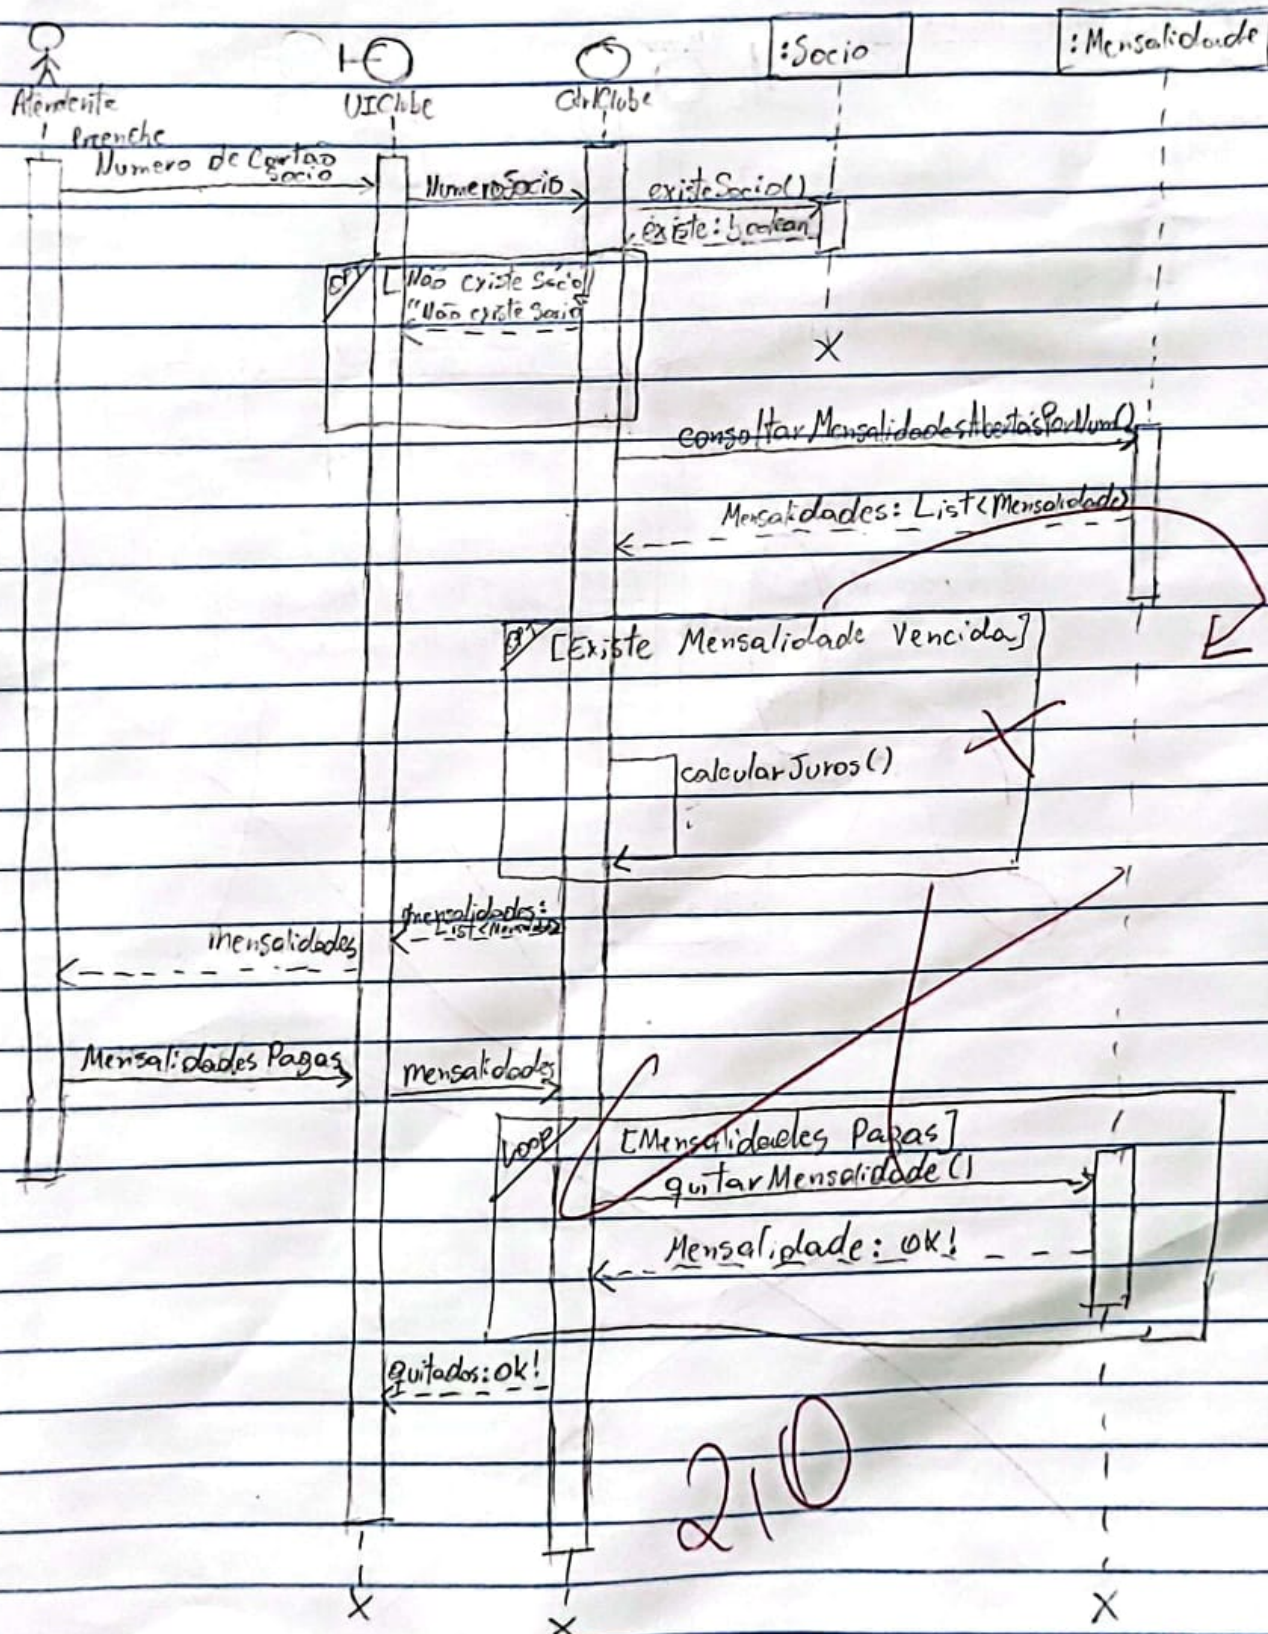 :Socio
:Mensalidade
Atendente
UIClube
CtrlClube
Preenche
Numero de Cartão
Socio
NumeroSocio
existeSocio()
existe: boolean
OPT
[Não existe Sócio]
"Não existe Socio"
X
consoltarMensalidadesAbertasPorNum()
Mensalidades: List<Mensalidade>
OPT
[Existe Mensalidade Vencida]
calcularJuros()
mensalidades:
List<Mensalidade>
mensalidades
Mensalidades Pagas
mensalidades
LOOP
[Mensalidades Pagas]
quitarMensalidade()
Mensalidade: ok!
quitados: ok!
2,0
X
X
X